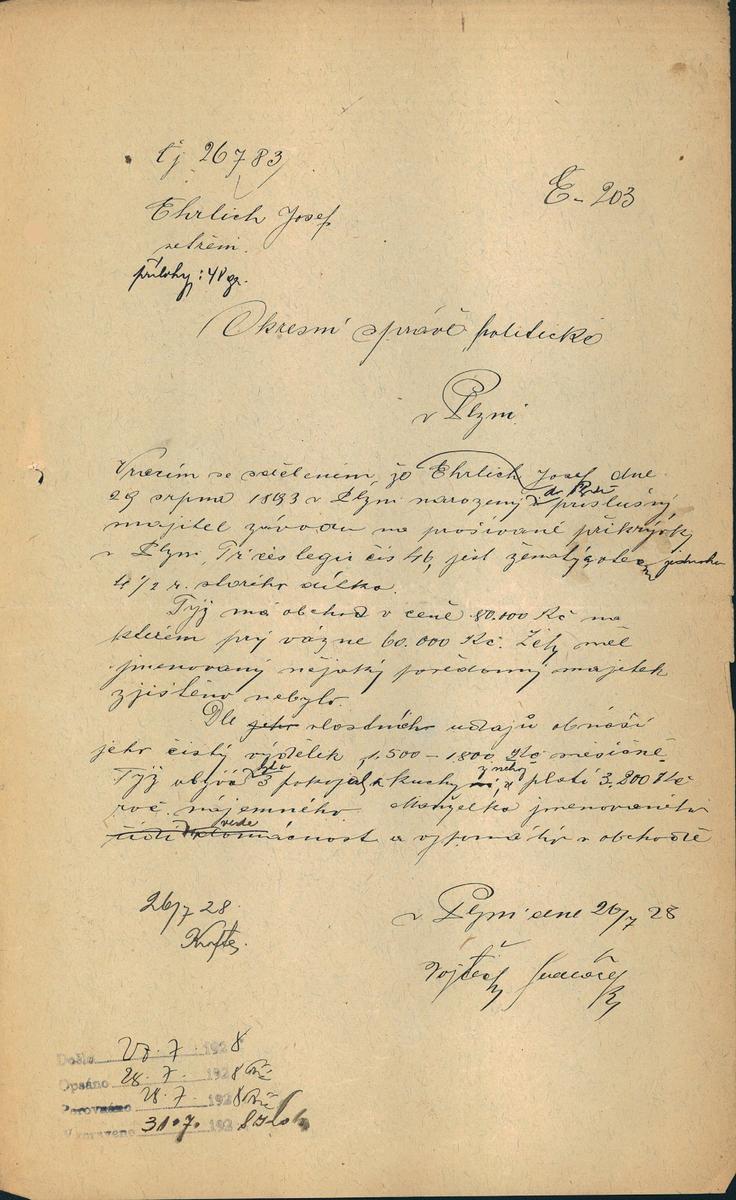 čj 26783
E-203
Ehrlich Josef
šetření.
přílohy: 48
Okresní správě politické
v Plzni
Vracím se sdělením, že Ehrlich Josef dne
29 srpna 1893 v Plzni narozený do Plzně příslušný
majitel závodu na prošívané přikrývky
v Plzni, Tř čes legií čís 46, jest ženatý a otec jednoho
4 1/2 r. starého dítka.
Týž má obchod v ceně 80.000 Kč na
kterém prý vázne 60.000 Kč. Žeby měl
jmenovaný nějaký pozědomý majetek
zjištěno nebylo.
Dle jeho vlastních udajů obnáší
jeho čistý výdělek 1.500 – 1800 Kč měsíčně
Týž obývá byt o 3 pokojích a kuchy z něhož platí 3.200 Kč
roč. nájemného. Manželka jmenovaného
řídí vede domácnost a vypomáhá v obchodě
26/7 28.
v Plzni dne 26/7 28
Vojtěch
Došlo 27.7. 1928
Opsáno 28.7. 1928
Porovnáno 28.7. 1928
Vypraveno 31.7. 1928